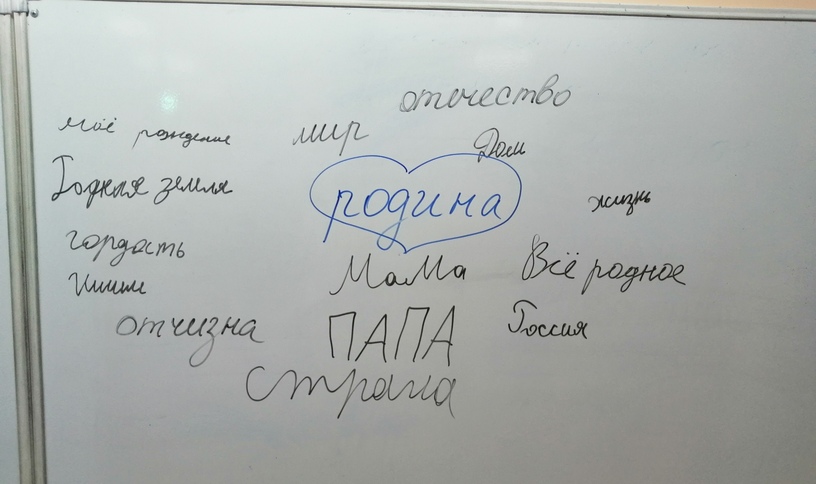 отечество
моё рождение
мир
Дом
Родная земля
родина
жизнь
гордость
мама
Всё родное
отчизна
ПАПА
Россия
страна